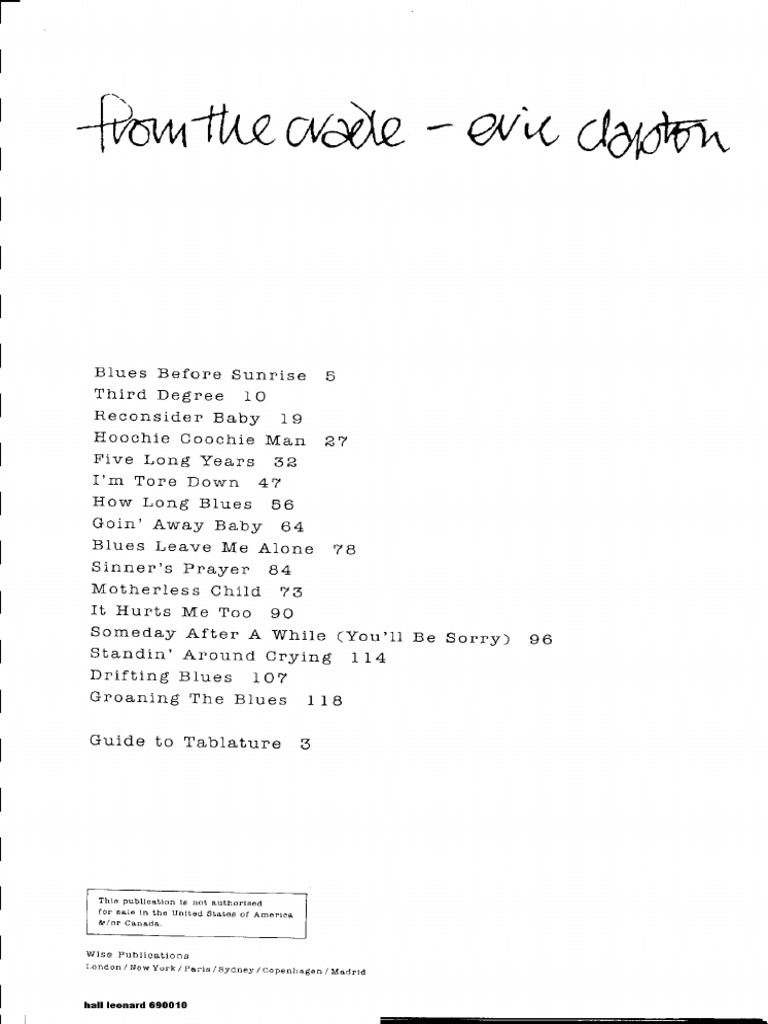 from the cradle - eric clapton
Blues Before Sunrise 5
Third Degree 10
Reconsider Baby 19
Hoochie Coochie Man 27
Five Long Years 32
I'm Tore Down 47
How Long Blues 56
Goin' Away Baby 64
Blues Leave Me Alone 78
Sinner's Prayer 84
Motherless Child 73
It Hurts Me Too 90
Someday After A While (You'll Be Sorry) 96
Standin' Around Crying 114
Drifting Blues 107
Groaning The Blues 118
Guide to Tablature 3
This publication is not authorised
for sale in the United States of America
&/or Canada.
Wise Publications
London/New York/Paris/Sydney/Copenhagen/Madrid
hall leonard 690010